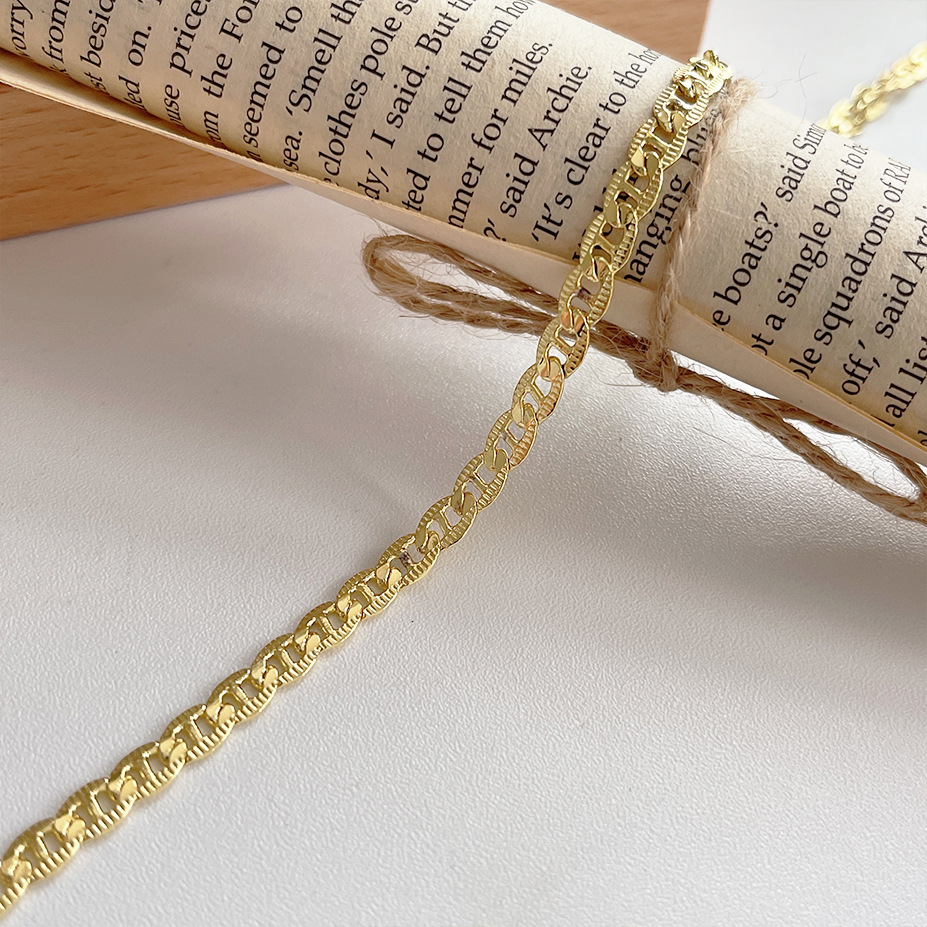 from
st beside
led on.
use prices
om the For
n seemed to
sea. ‘Smell the
clothes pole s
dy,’ I said. But t
ted to tell them ho
mmer for miles.
?’, said Archie.
‘It’s clear to the hor
hanging blues
e boats?’ said Sim
ot a single boat to be
ole squadrons of RA
off,’ said Arch
all list